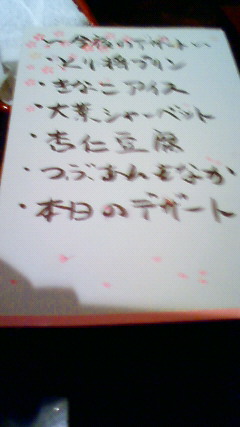 ・今夜のデザート・・
・とり卵プリン
・きなこアイス
・大葉シャーベット
・杏仁豆腐
・つぶあんもなか
・本日のデザート